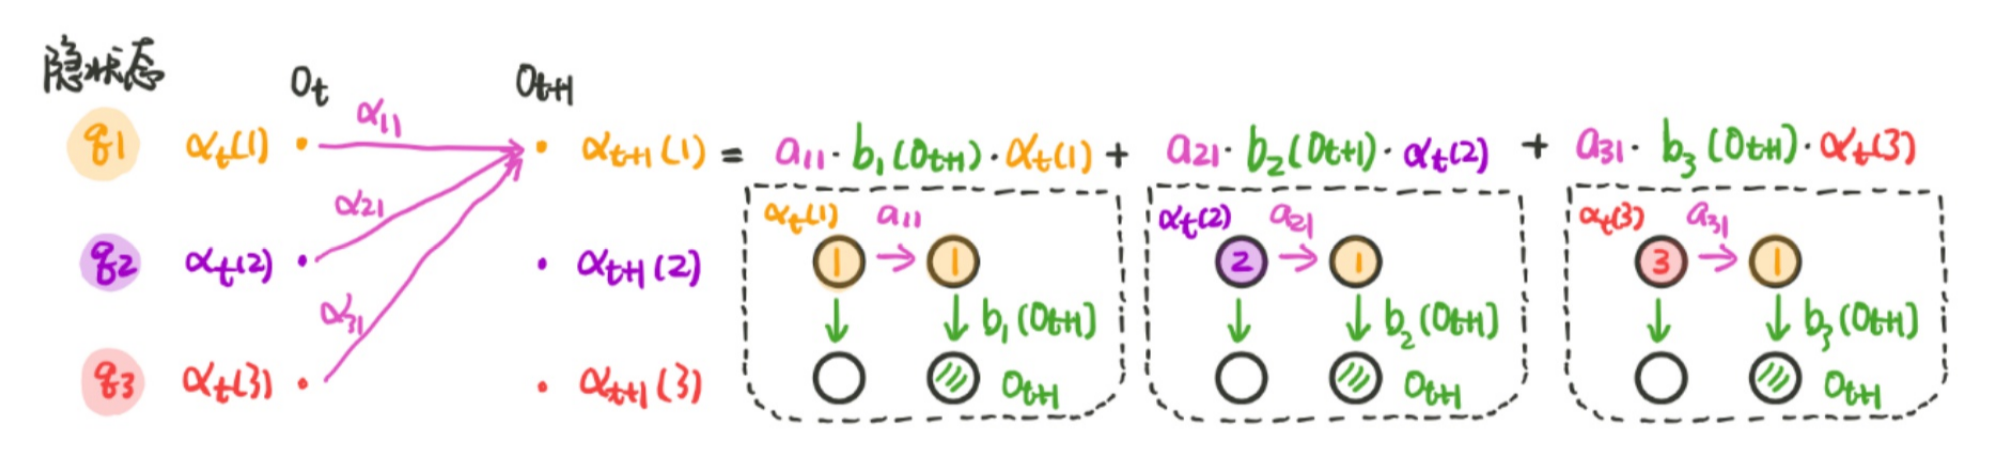 隐状态
Ot Ot+1
q1 αt(1) α11 αt+1(1) = a11·b1(Ot+1)·αt(1) + a21·b2(Ot+1)·αt(2) + a31·b3(Ot+1)·αt(3)
α21
q2 αt(2) αt+1(2)
α31
q3 αt(3) αt+1(3)
αt(1) a11
1 1
b1(Ot+1)
Ot+1
αt(2) a21
2 1
b2(Ot+1)
Ot+1
αt(3) a31
3 1
b3(Ot+1)
Ot+1